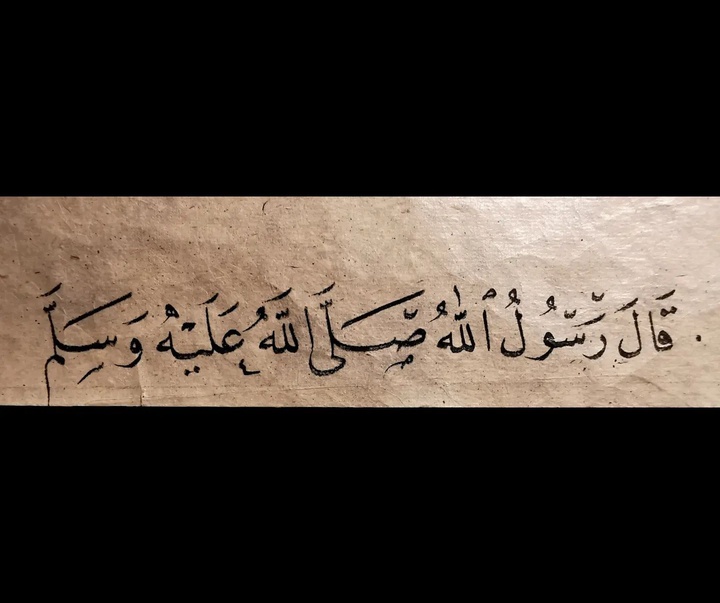 قَالَ رَسُولُ ٱللّٰهُ صَلَّى اللَّهُ عَلَيْهُ وَسَلَّمَ